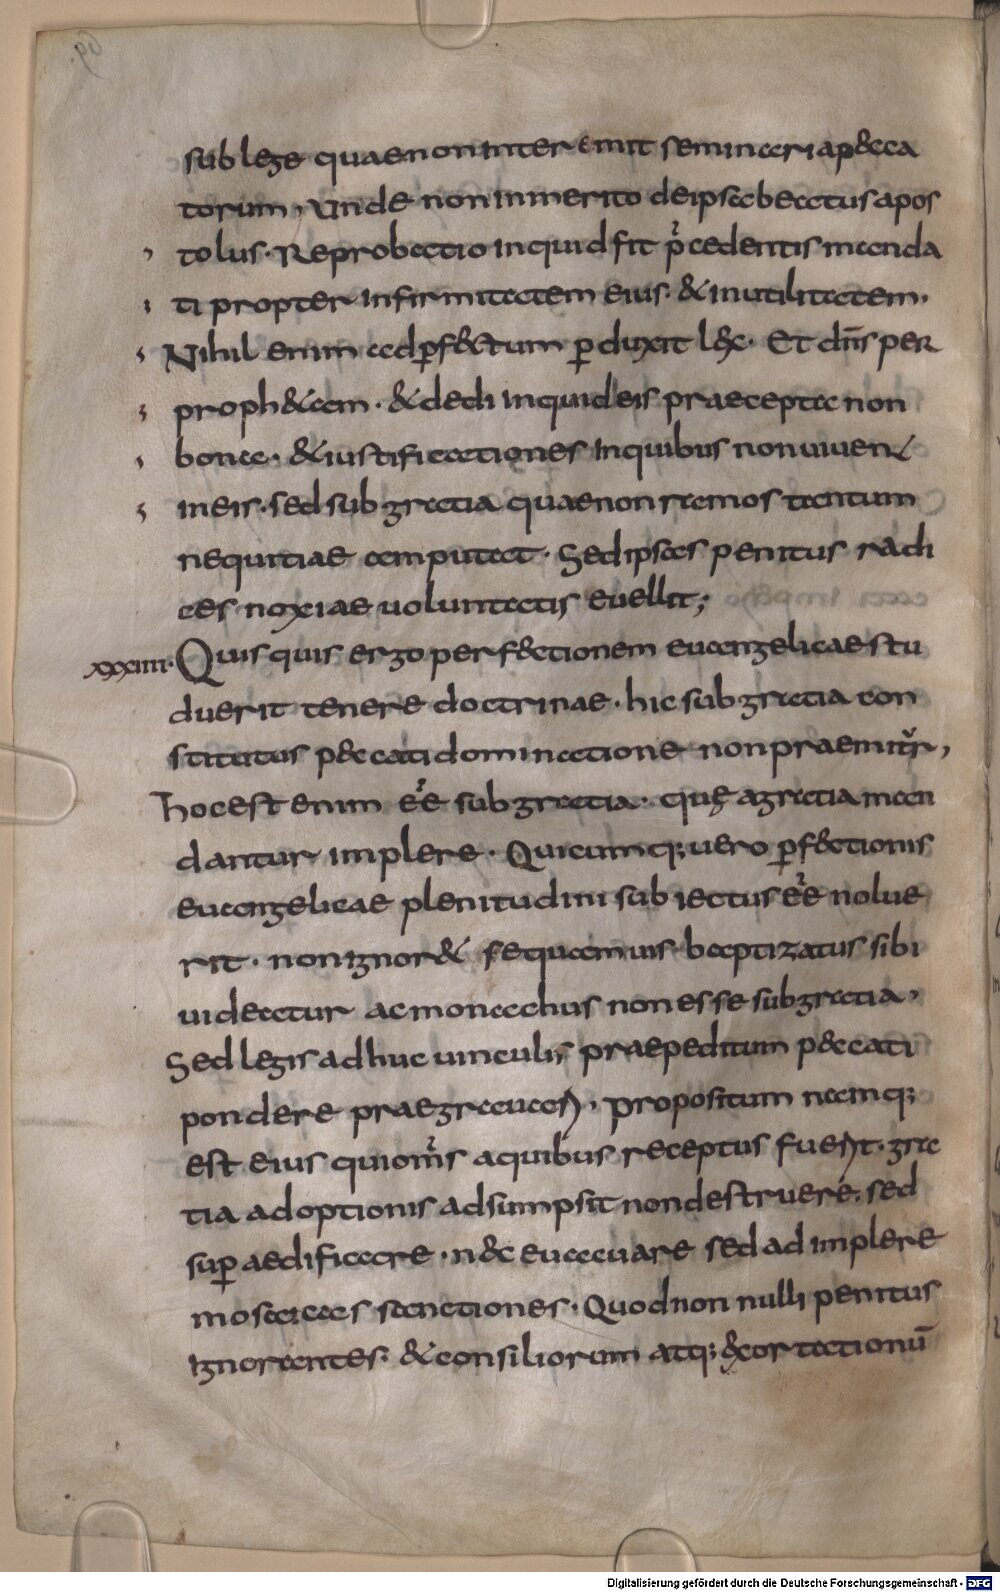 69.
sub lege quae non interemit seminaria p&cca
torum, Unde non inmerito de ipsa beatus apos
tolus. Reprobatio inquid fit p̓cedentis manda
ti propter infirmitatem eius. & inutilitatem.
Nihil enim ad ꝑf&ctum ꝑduxit l&x. Et dn̄s per
proph&am. & dedi inquid eis praecepta non
bona. & iustificationes in quibus non uiuent
in eis. sed sub gratia quae non ramos tantum
nequitiae amputat. Sed ipsas penitus radi
ces noxiae uoluntatis euellit;
xxxiiii. Quisquis ergo perf&ctionem euangelicae stu
duerit tenere doctrinae. hic sub gratia con
stitutus p&ccati dominatione non praemitur,
hoc est enim ee̓ sub gratia. quę a gratia man
dantur implere. Quicumq; uero ꝑf&ctionis
euangelicae plenitudini subiectus ee̓ nolue
rit. non ignor& se quamuis baptizatus sibi
uideatur ac monachus non esse sub gratia,
Sed legis adhuc uinculis praepeditum p&ccati
pondere praegrauari, propositum namq;
est eius qui om̓s a quibus receptus fuerit. gra
tia adoptionis adsumpsit non destruere. sed
suꝑaedificare. n&c euacuare sed adimplere
mosaicas sanctiones. Quod nonnulli penitus
ignorantes. & consiliorum atq; &xortationū